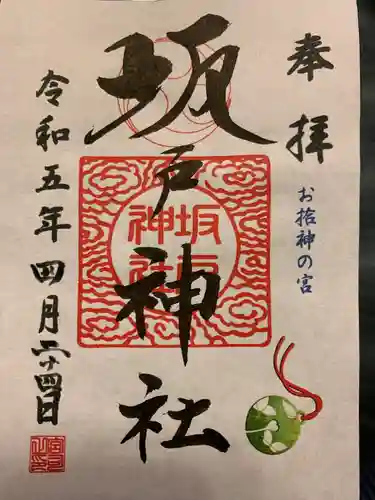 奉拝
お捨神の宮
坂戸神社
坂戸神社
令和五年四月二十四日